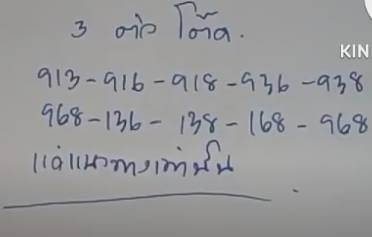 3 ตัว โต๊ด.
KIN
913-916-918-936-938
968-136-138-168-968
แค่แนวทางเท่านั้น